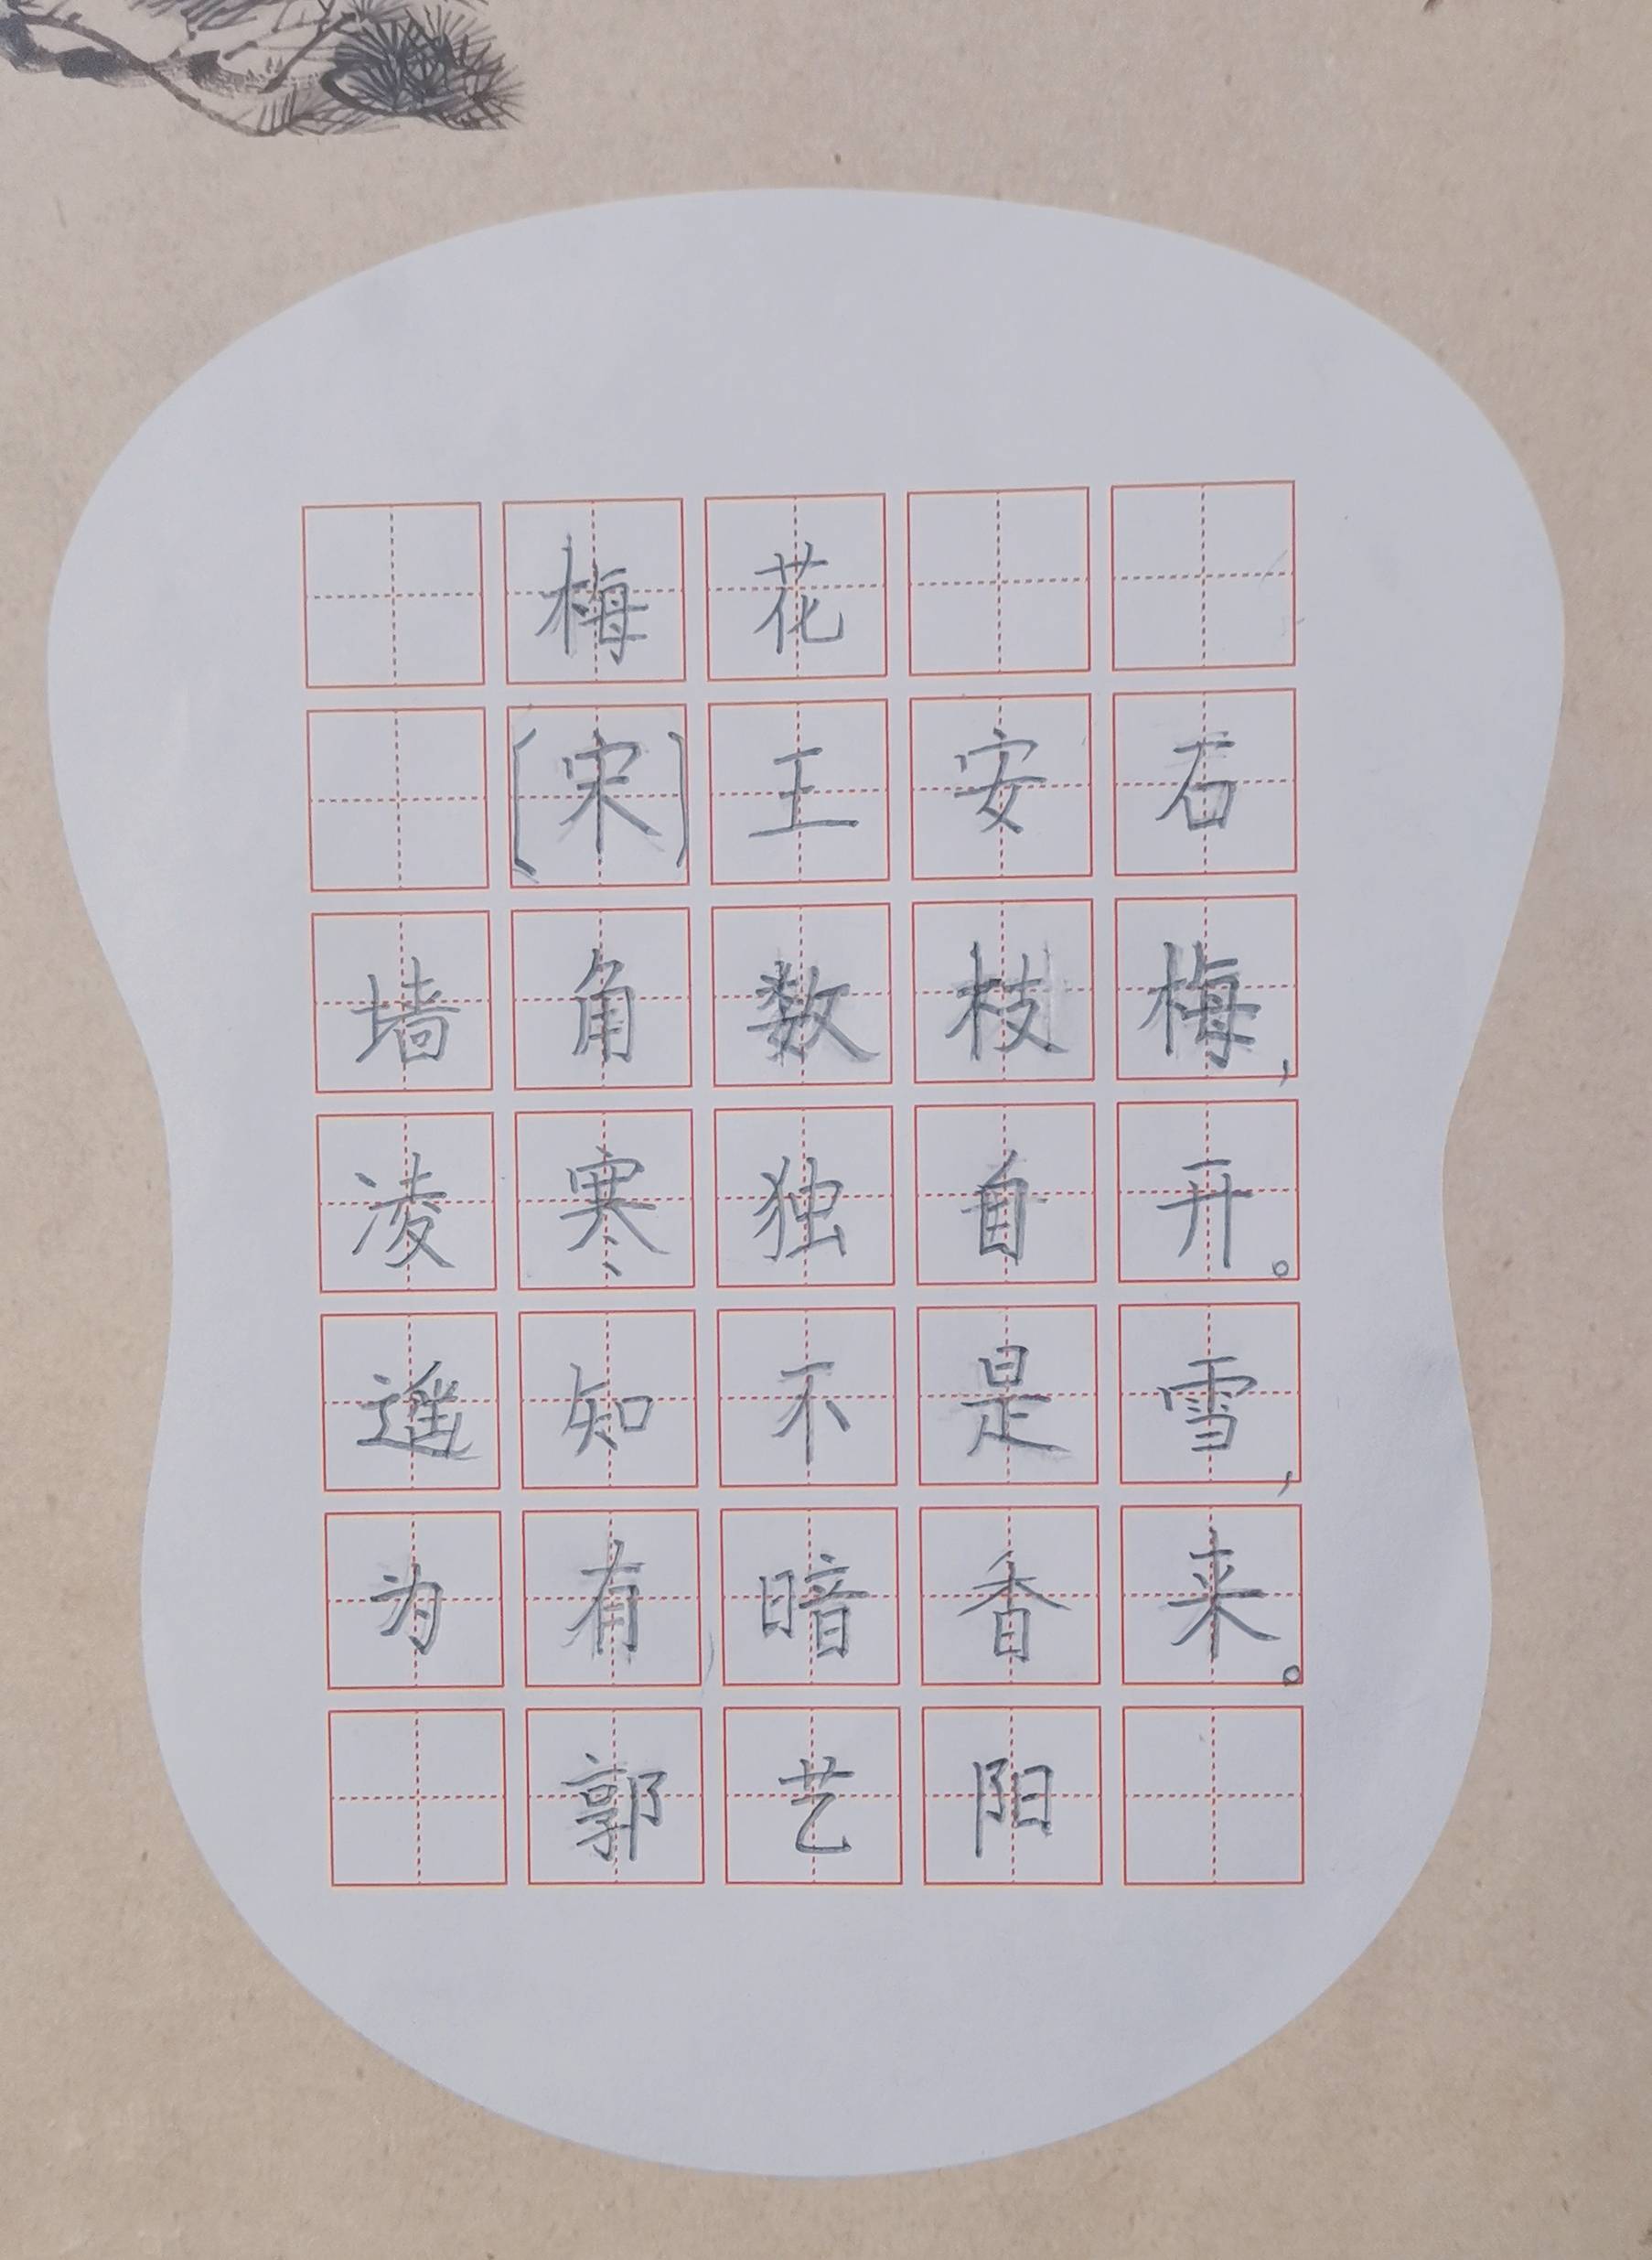 梅花
[宋]王安石
墙角数枝梅,
凌寒独自开。
遥知不是雪,
为有暗香来。
郭艺阳